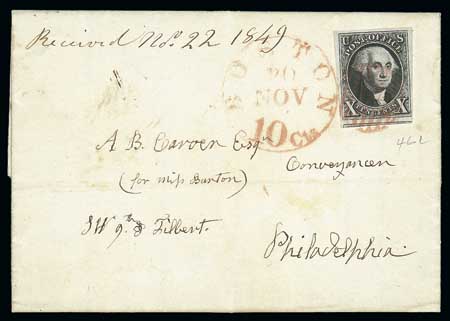 Received Nov. 22 1849
BOSTON
20
NOV
10 Cts
U S
POST OFFICE
X TEN CENTS X
PAID
A B Carver Esqr
Conveyancer
(for miss Burton)
SW 9th & Filbert.
Philadelphia.